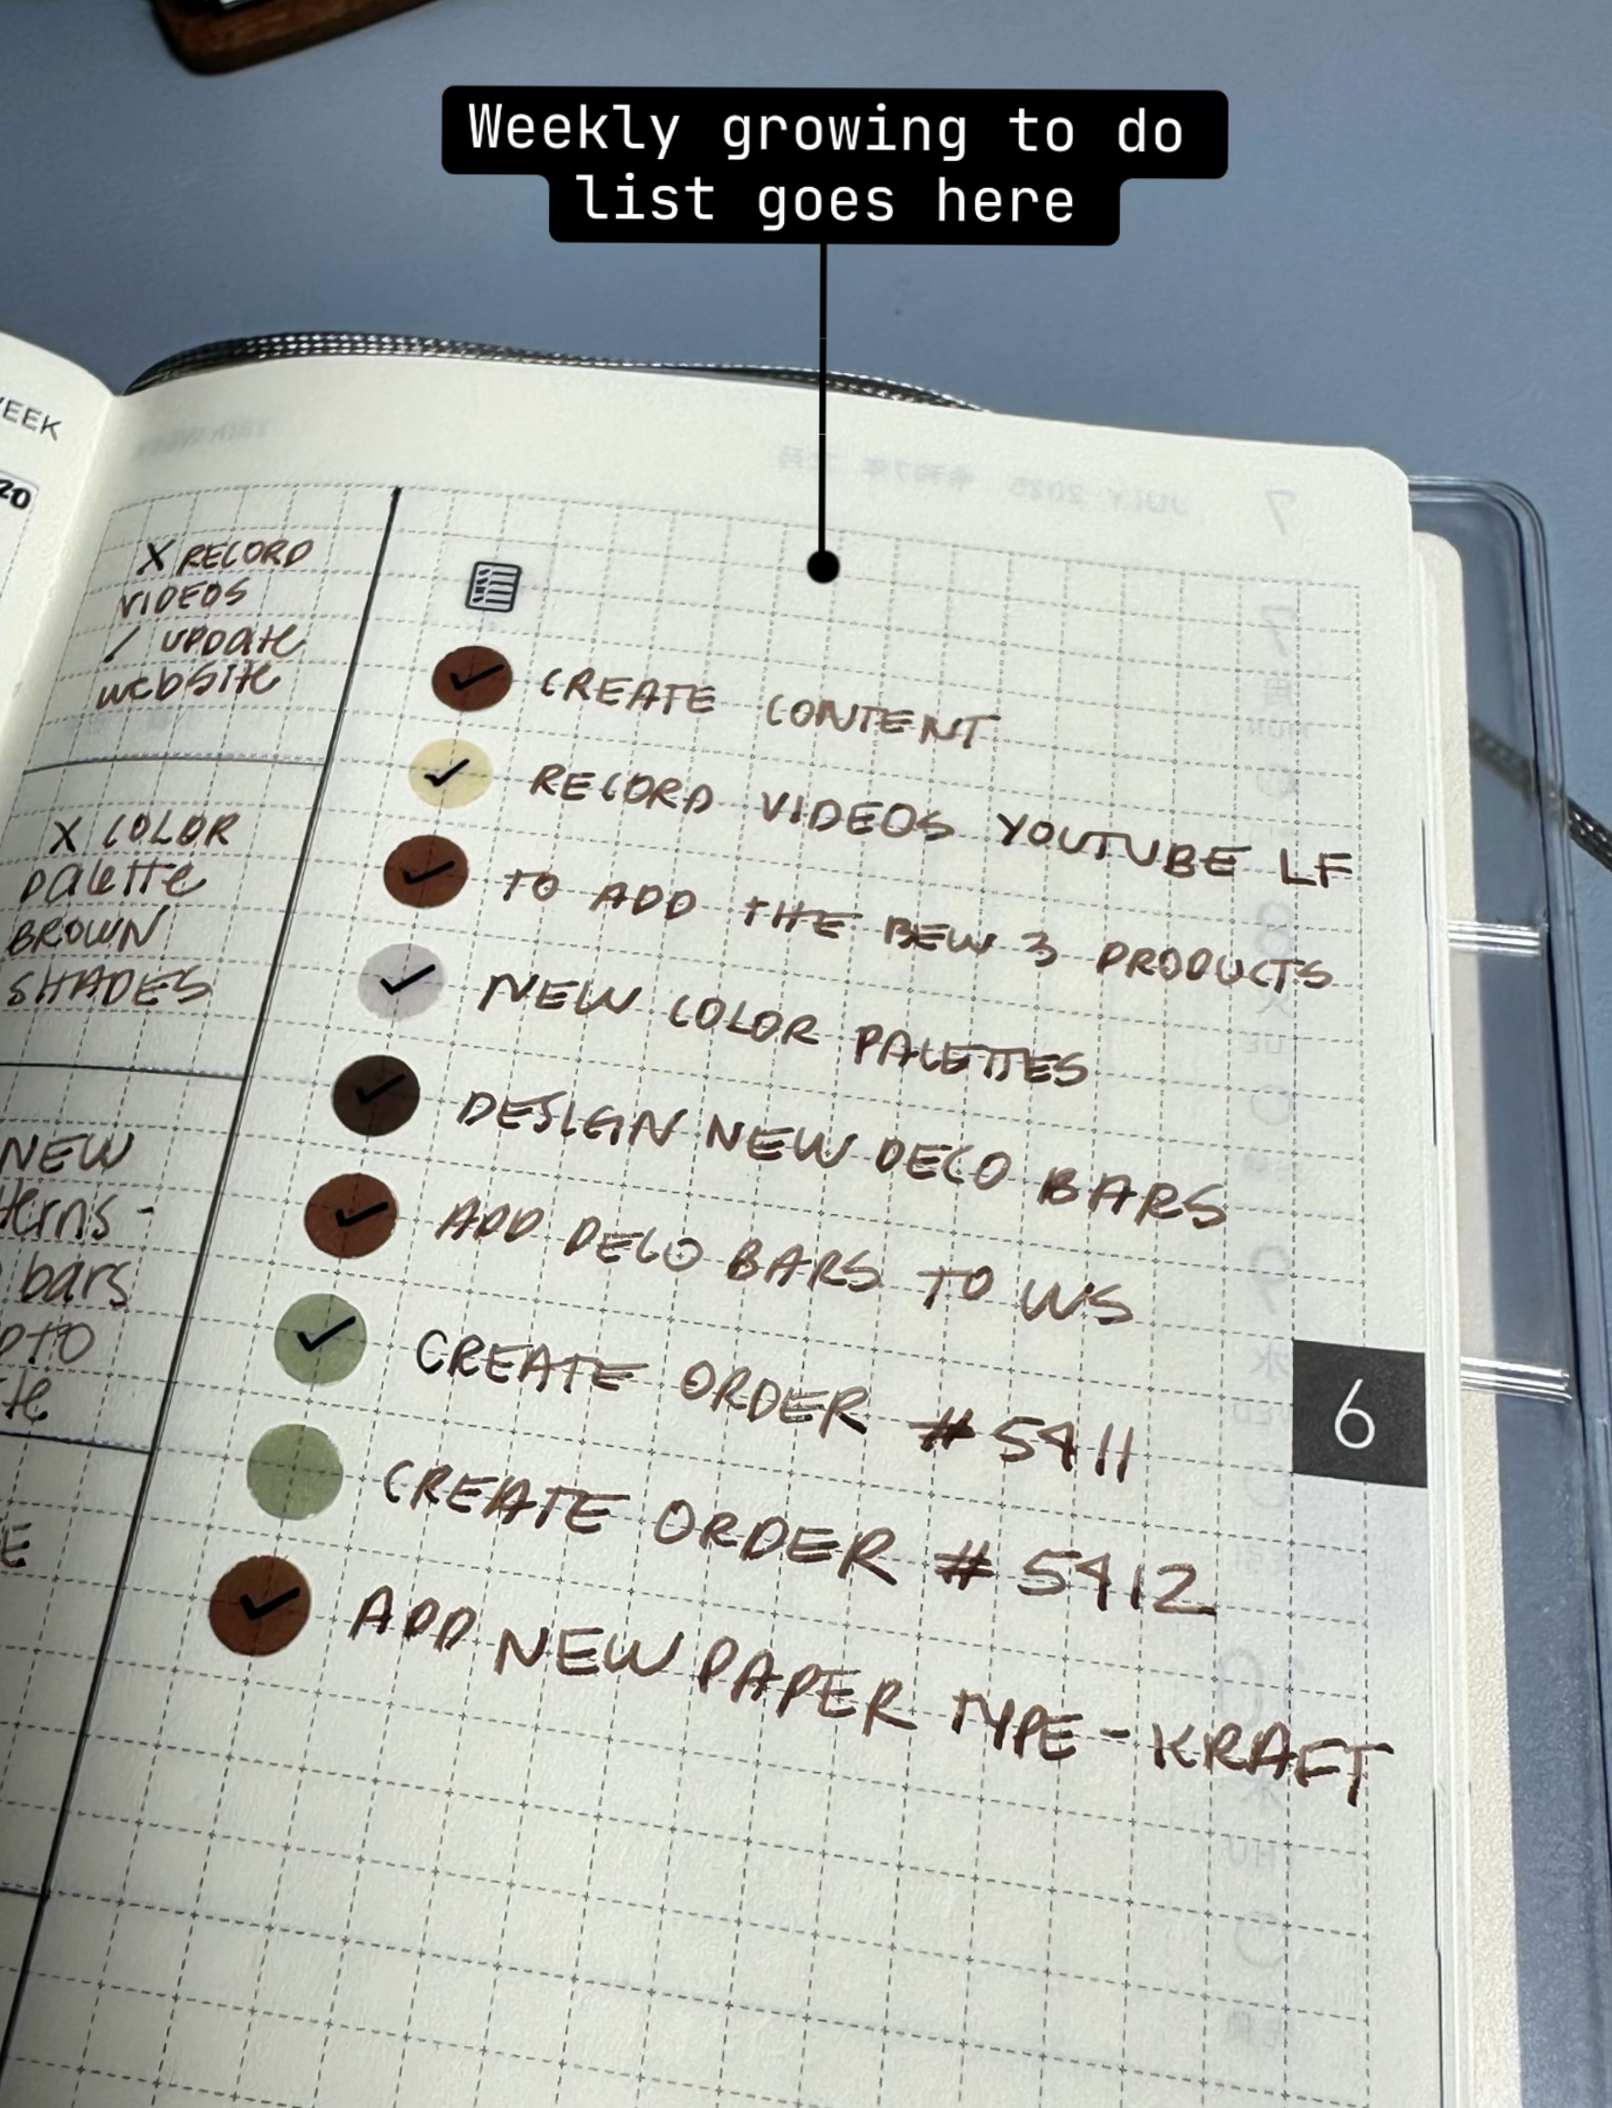 Weekly growing to do
list goes here
EEK
20
X RECORD
VIDEOS
/ UPDATE
WEBSITE
X COLOR
PALETTE
BROWN
SHADES
NEW
terns -
bars
TO
E
CREATE CONTENT
RECORD VIDEOS YOUTUBE LF
TO ADD THE BEW 3 PRODUCTS
NEW COLOR PALETTES
DESIGN NEW DECO BARS
ADD DECO BARS TO WS
CREATE ORDER #5411
CREATE ORDER #5412
ADD NEW PAPER TYPE - KRAFT
6
7 JULY 2025 令和7年 七月
7
月
MON
8
9
水
10
THU